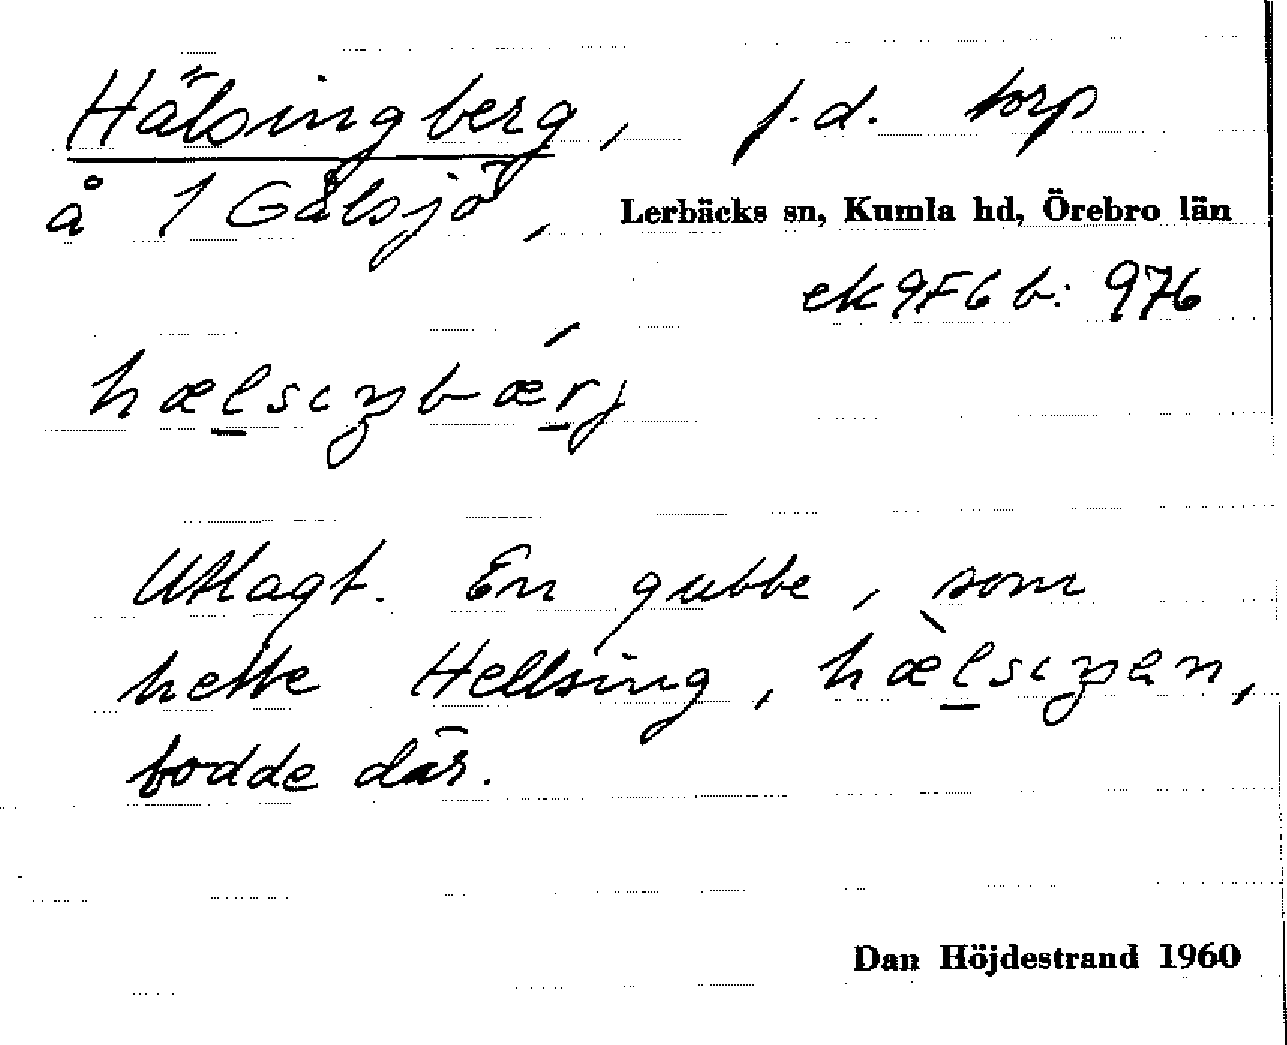 Hälsingberg, f.d. torp
å 1 Gålsjö, Lerbäcks sn, Kumla hd, Örebro län
ek 9F6 b: 976
hælsıŋbǽrj
Utlagt. En gubbe, som
hette Hellsing, hæ̀lsıŋen,
bodde där.
Dan Höjdestrand 1960